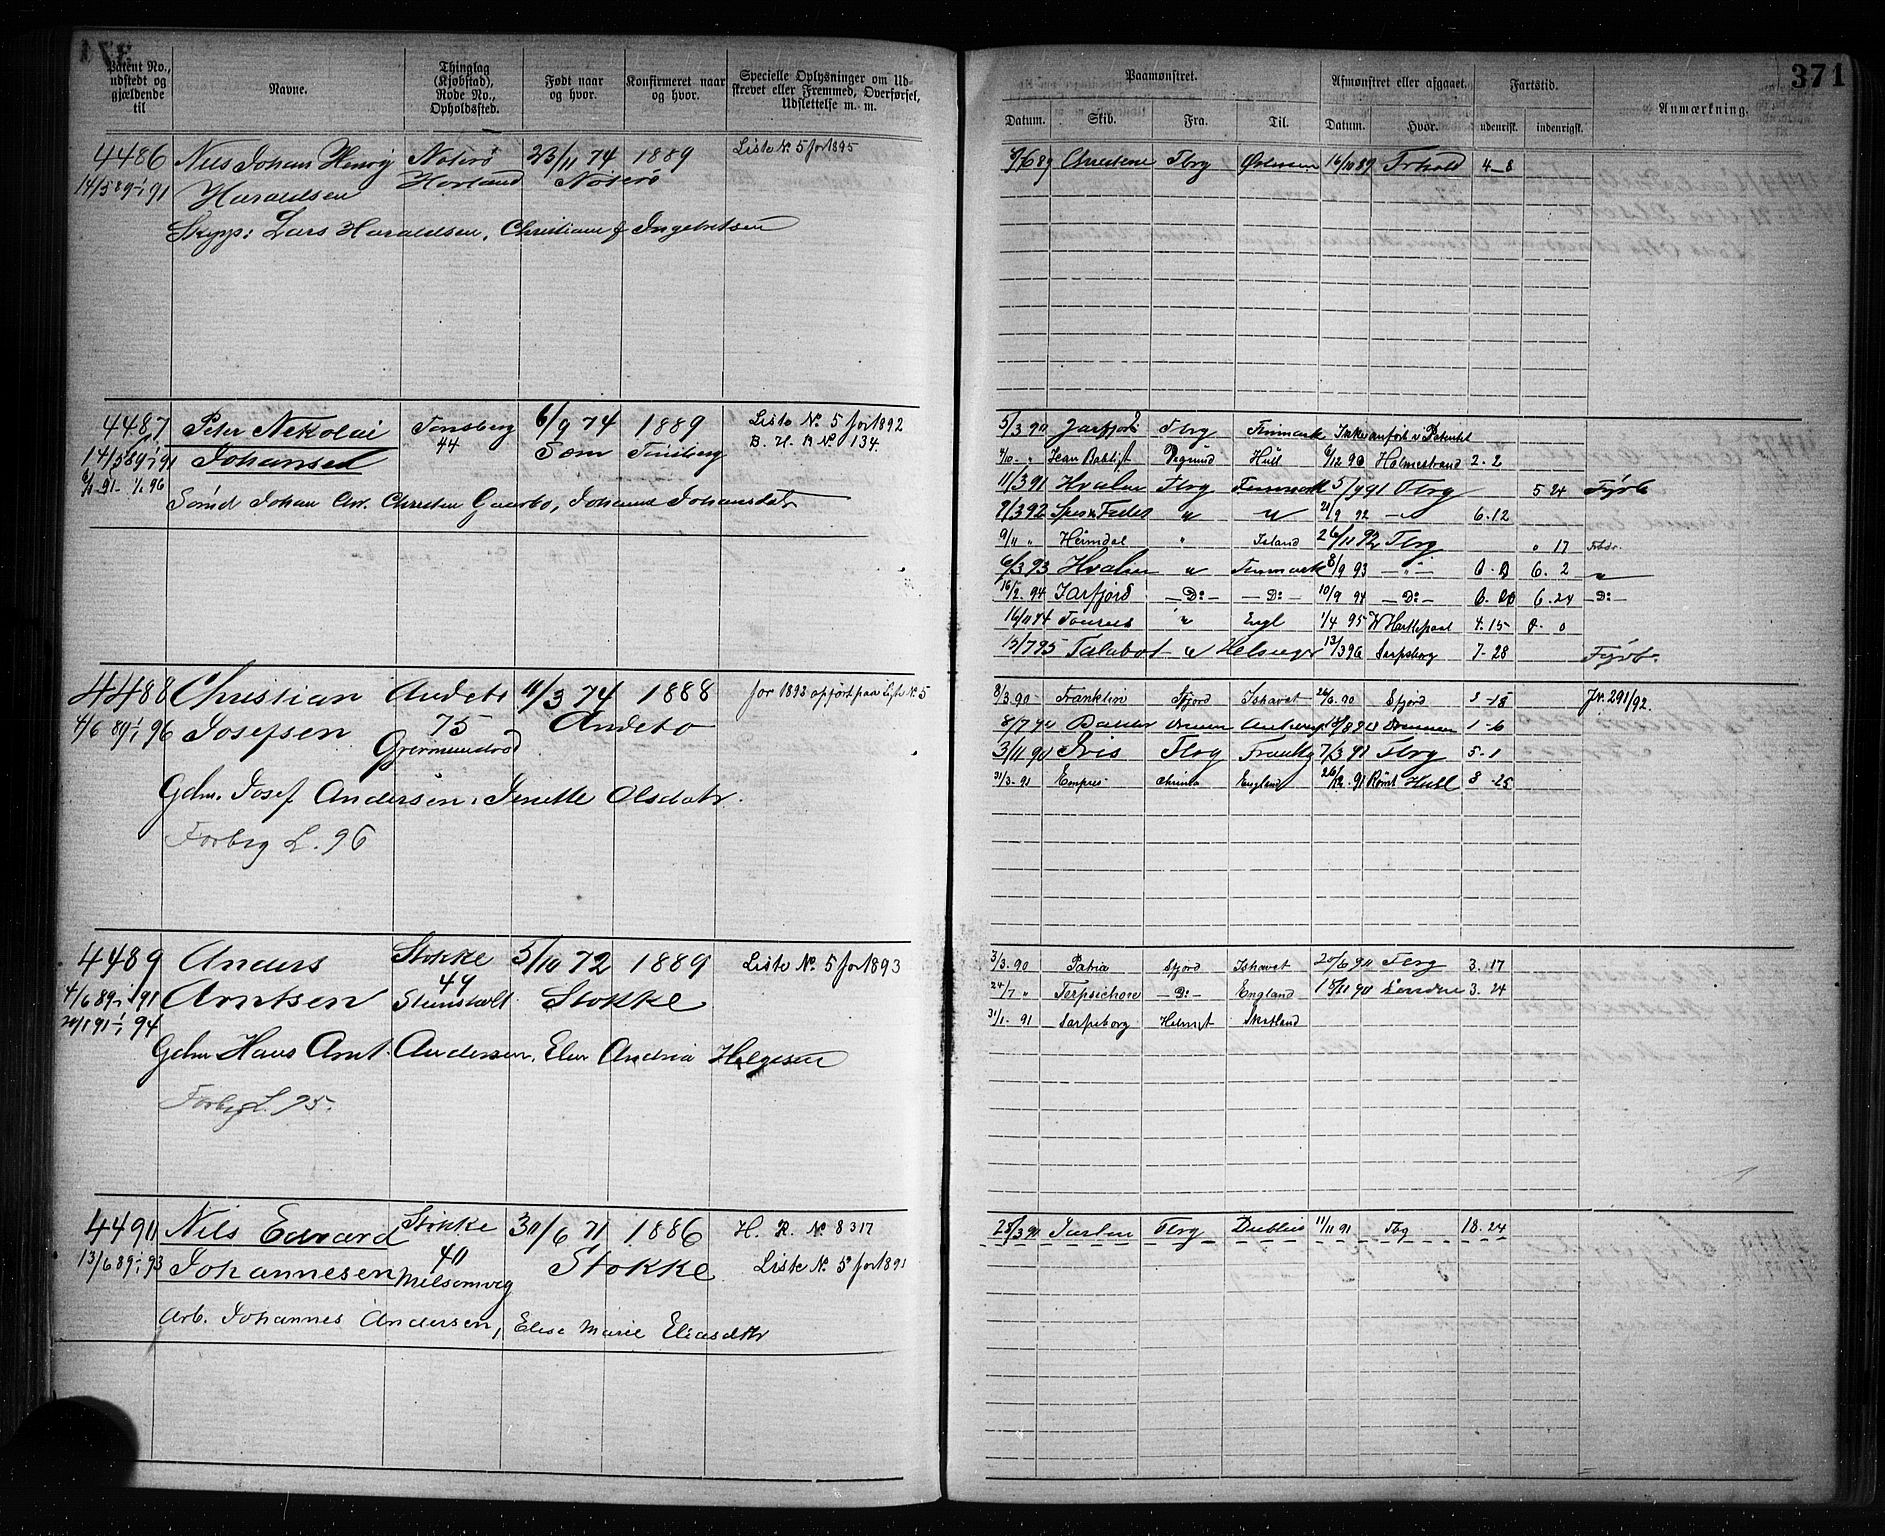 371
Patent No., udstedt og gjældende til
Navne.
Thinglag (Kjøbstad), Rode No., Opholdssted.
Født naar og hvor.
Konfirmeret naar og hvor.
Specielle Oplysninger om Udskrevet eller Fremmed, Overførsel, Udslettelse m. m.
4486 Nils Johan Henrig Nøterø 23/11 74 1889 Liste No 5 for 1895
14/5 89-1/1 91 Haraldsen Nøterø
Skipp: Lars Haraldsen, Christiane J Ingebretsen
4487 Peter Nikolai Tønsberg 6/9 74 1889 Liste No 5 for 1892
14/5 89-1/1 91 Johansen 44 Sem Tønsberg B. H. B No 134.
Johan Chr. Christen Johanne Johansdatr
4488 Christian Andebo 11/3 74 1888 for 1893 opført paa Liste No 5
4/6 89-1/1 96 Josefsen 75 Andebo
Gdm. Josef Andersen, Jenette Olsdatr.
Forbig L. 96
4489 Anders Stokke 5/10 72 1889 Liste No 5 for 1893
4/6 89-1/1 91 Arntsen 49 Stokke
20/1 91-1/1 94
Gdm Hans Arnt Andersen, Elen Andrea Helgesen
Forbig L. 95.
4490 Nils Edvard Stokke 30/6 71 1886 H. R. No 8317
13/6 89-1/1 93 Johannesen 40 Melsomvig Stokke Liste No 5 for 1891
Arb. Johannes Andersen, Elise Marie Eliasdtr
371
Paamønstret.
Afmønstret eller afgaaet.
Fartstid.
Anmærkning.
Datum. Skib. Fra. Til. Datum. Hvor. udenrigst. indenrigst.
Christine Tbrg Østersøen 16/10 89 Frhald 4-8
5/3 90 Jarfjord Tbrg Finmark Ikke anført i Patentet
4/10 " Jean Baptist Hull 6/12 90 Holmestrand 2-2
11/3 91 Hvalen Tbrg Finmark 5/9 91 Tbrg 5 24 Fyrb
9/3 92 Spes & Fides " " 21/9 92 - " 6.12
9/11 " Heimdal " Island 26/11 92 Tbrg " 17
6/3 93 Hvalen " Finmark 8/9 93 - " - 0.0 6.2 "
16/2 94 Jarfjord - Do - - Do - 10/9 94 - Do - 0.00 6.24 Do -
16/11 94 " Engl 1/4 95 W Hartlepool 4.15 0-0
15/7 95 Talabot " Helsingør 13/3 96 Sarpsborg 7-28 Fyrb.
8/3.90 Franklin Sfjord Ishavet 26/6.90 Sfjord 3-18 Jr. 291/92
8/7 90 Balder Drmn Drammen 1-6
3/11 90 Iris Tbrg Frankrg 7/3 91 Tbrg 5-1
31/3.91 Empres Christia England 26/12.91 Rømt Hull 8-25
3/3.90 Patria Sfjord Ishavet 20/6 90 Tbrg 3.17
24/7 " Terpsichore - Do - England 18/11 90 London 3.24
31/1.91 Sarpsborg Holmst Skotland
28/3 90 Jarlen Tbrg Dublin 11/11 91 Tbg 18.24